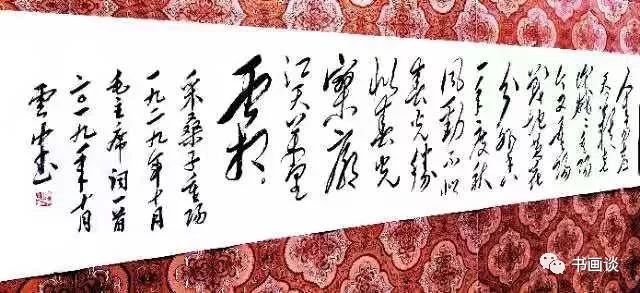 人生易老
天難老
歲歲重陽
今又重陽
戰地黃花
分外香
一年一度秋
風勁不似
春光勝
似春光
寥廓
江天萬里
霜
采桑子重陽
一九二九年十月
毛主席詞一首
二〇一九年十月
書画谈